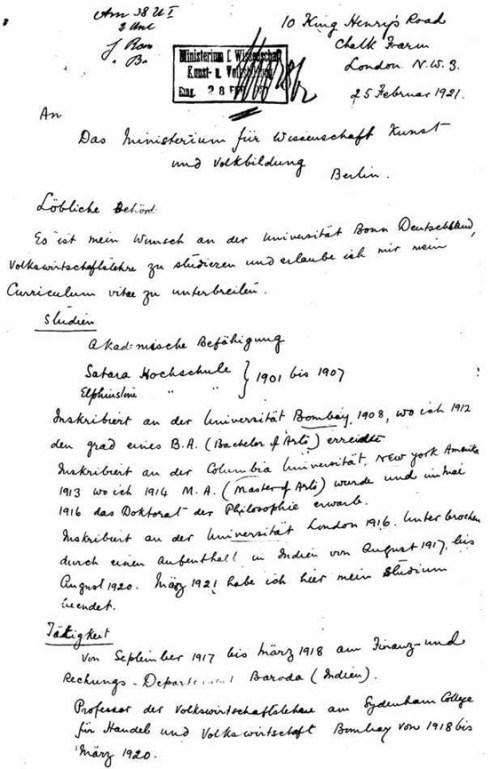 10 King Henry's Road
Chalk Farm
London N.W. 3.
25 Februar 1921.
Ministerium f. Wissenschaft
Kunst- u. Volksbildung
Eing. 28 FEB
An
Das Ministerium für Wissenschaft Kunst
und Volkbildung
Berlin.
Löbliche Behörd
Es ist mein Wunsch an der Universität Bonn Deutschland,
Volkswirtschaftslehre zu studieren und erlaube ich mir mein
Curriculum vitae zu unterbreiten.
Studien
Akademische Befähigung
Satara Hochschule } 1901 bis 1907
Elphinstone " "
Inskribiert an der Universität Bombay, 1908, wo ich 1912
den grad eines B.A. (Bachelor of Arts) erreichte
Inskribiert an der Columbia Universität, New York Amerika
1913 wo ich 1914 M.A. (Master of Arts) wurde und im Mai
1916 das Doktorat der Philosophie erwarb.
Inskribiert an der Universität London 1916. Unterbrochen
durch einen Aufenthalt in Indien von August 1917, bis
August 1920. März 1921 habe ich hier mein Studium
beendet.
Tätigkeit
Von September 1917 bis März 1918 am Finanz-und
Rechungs-Departement Baroda (Indien).
Professor der Volkswirtschaftslehre am Sydenham College
für Handel und Volkswirtschaft Bombay von 1918 bis
März 1920.